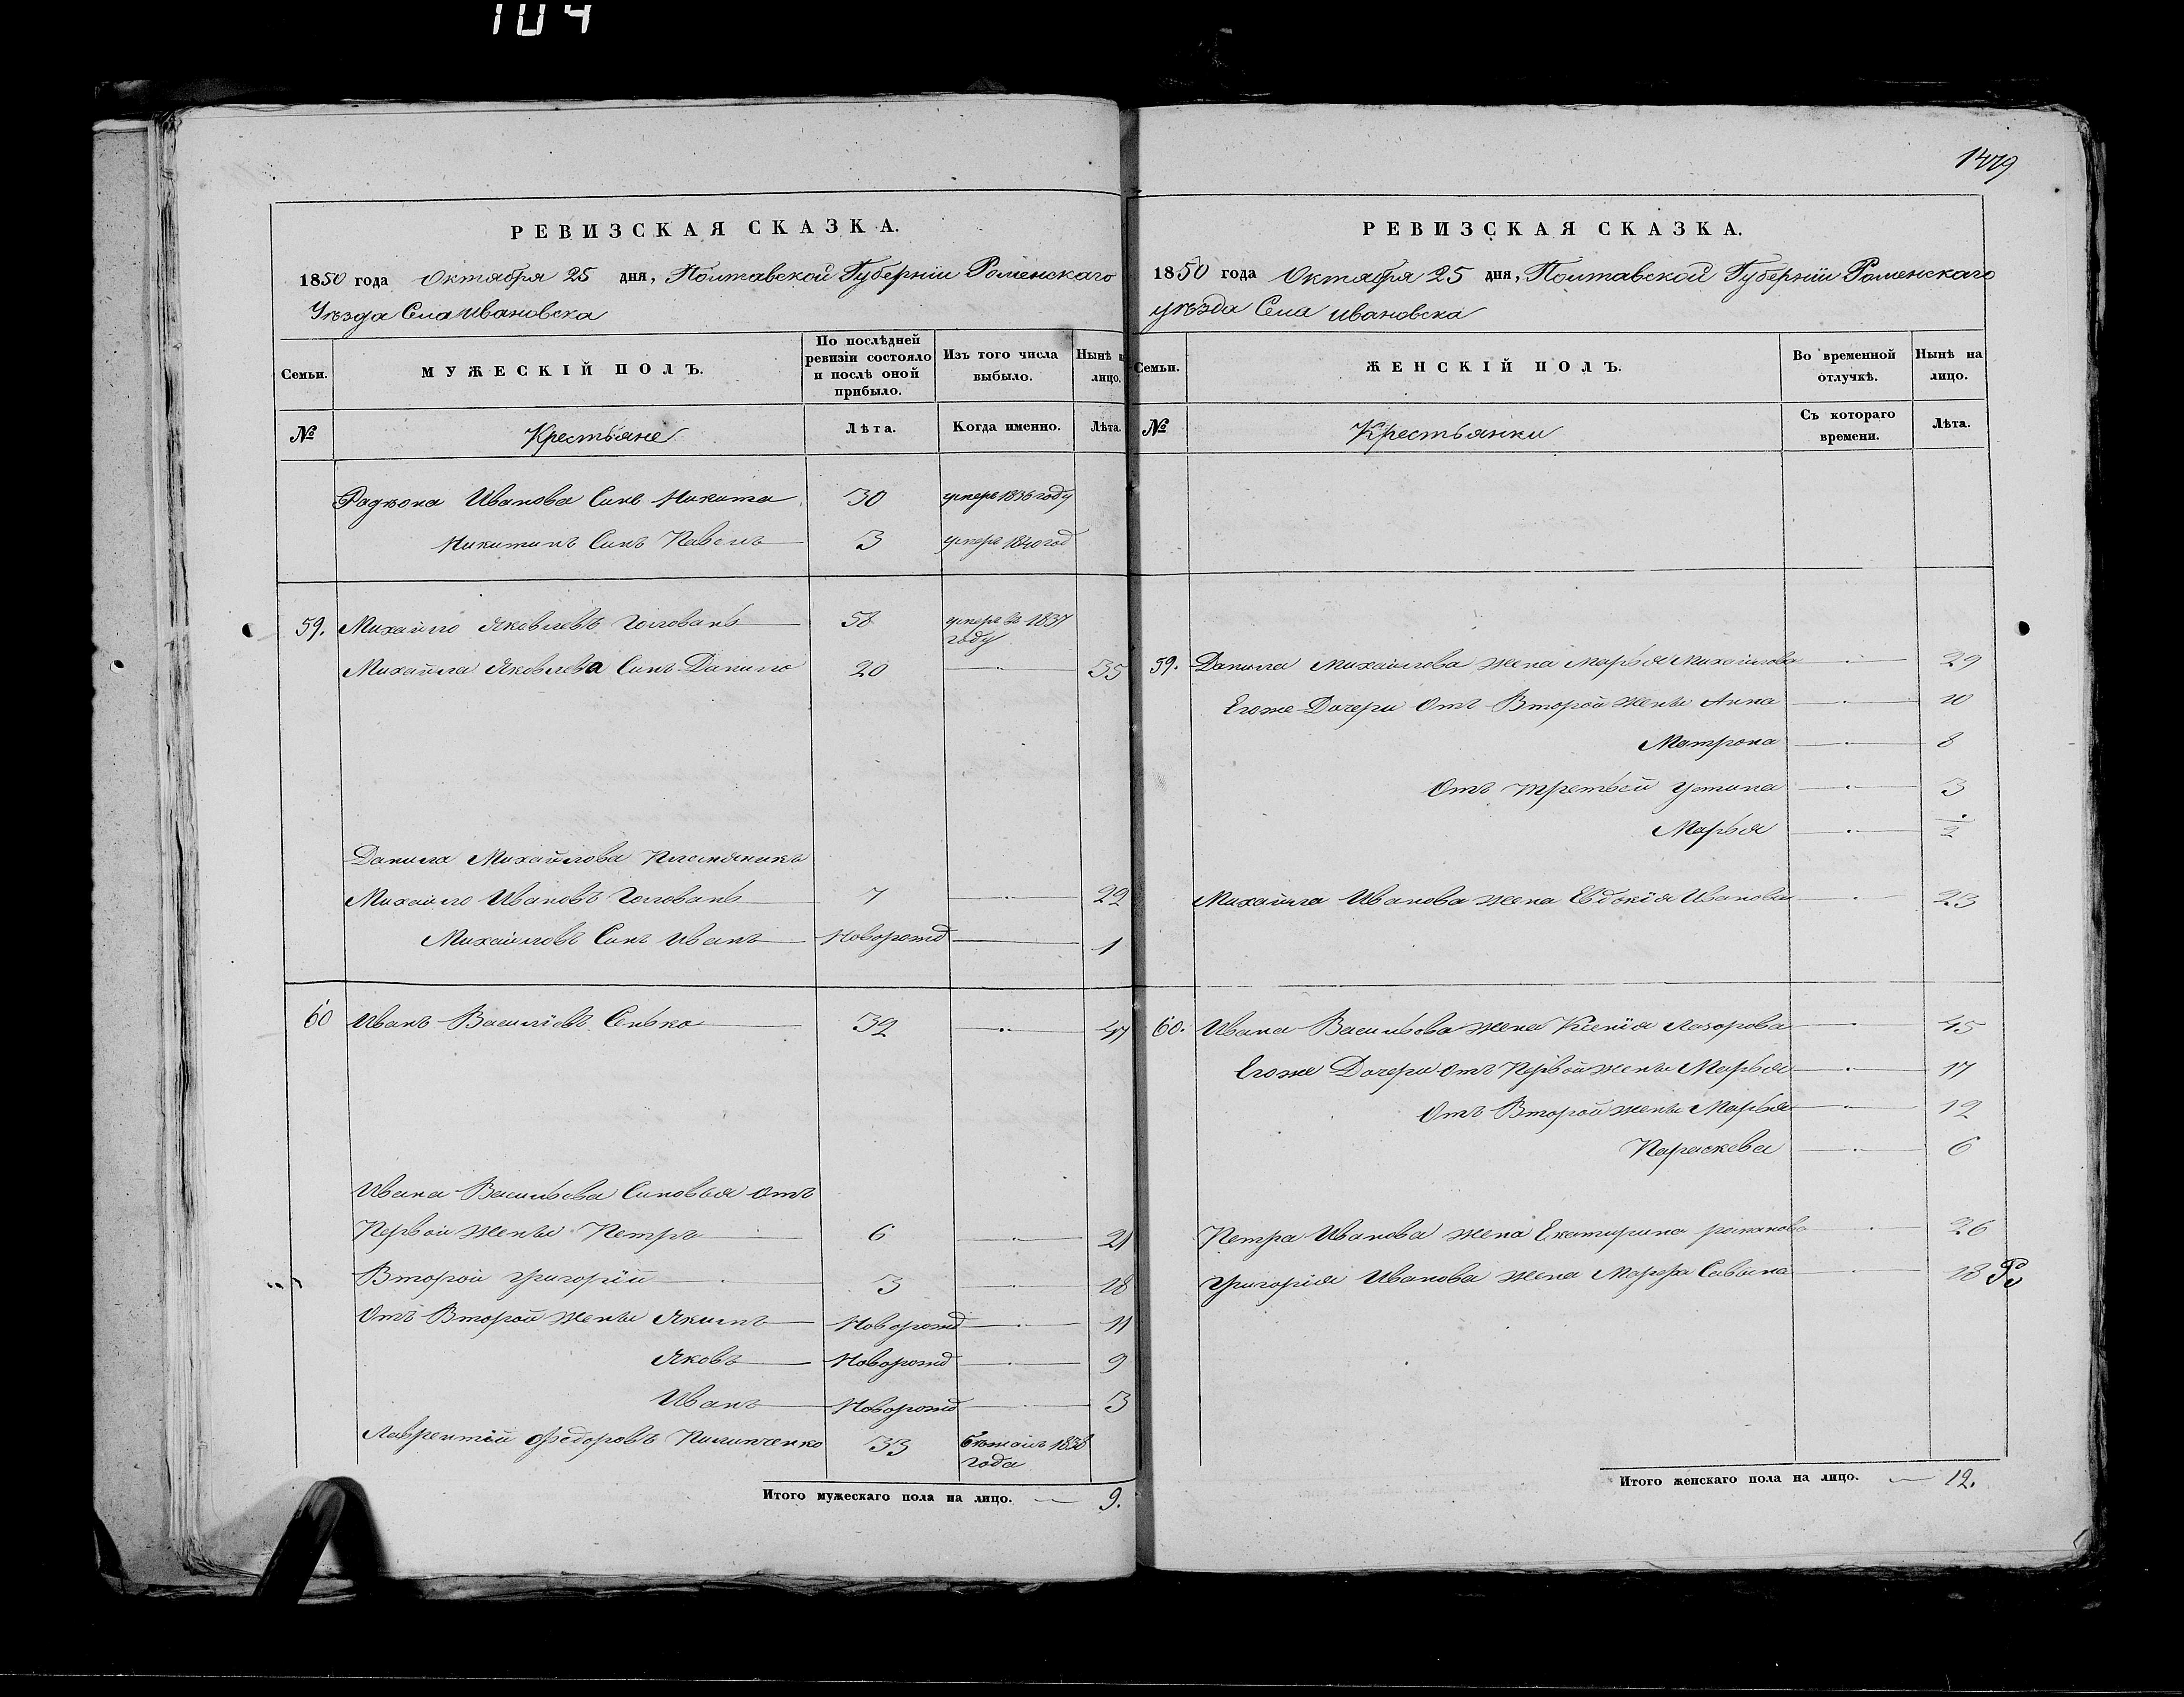 104
1479
РЕВИЗСКАЯ СКАЗКА.
1850 года Октября 25 дня, Полтавской Губерніи Роменскаго
Уѣзда Села Ивановска
Семьи.
МУЖЕСКІЙ ПОЛЪ.
По послѣдней ревизіи состояло и послѣ оной прибыло.
Изъ того числа выбыло.
Нынѣ на лицо.
№
Крестьяне
Лѣта.
Когда именно.
Лѣта.
Радѣона Иванова Синъ Никита 30 умеръ 1836 году
Никитинъ Синъ Павелъ 3 умеръ 1840 год
59. Михайло Яковлевъ Головань 58 умеръ въ 1837
году
Михайла Яковлева Синъ Данило 20 35
Данила Михайлова Племяникъ
Михайло Ивановъ Головань 7 22
Михайловъ Синъ Иванъ Новорожд 1
60 Иванъ Василіевъ Сенько 32 47
Ивана Васильева Синовья отъ
Первой жены Петръ 6 21
Второй Григорій 3 18
Отъ Второй жены Якимъ Новорожд 11
Яковъ Новорожд 9
Иванъ Новорожд 3
Лаврентій Федоровъ Пилипченко 33 бѣжалъ 1838
года
Итого мужескаго пола на лицо. 9.
РЕВИЗСКАЯ СКАЗКА.
1850 года Октября 25 дня, Полтавской Губерніи Роменскаго
уѣзда Села Ивановска
Семьи.
ЖЕНСКІЙ ПОЛЪ.
Во временной отлучкѣ.
Нынѣ на лицо.
№
Крестьянки
Съ котораго времени.
Лѣта.
59. Данила Михайлова жена Марья Михайлова 29
Егоже Дочери Отъ Второй жены Анна 10
Матрона 8
Отъ третьей Устина 3
Марья 1/2
Михайла Иванова жена Евдокія Иванова 23
60. Ивана Васильева жена Ксенія Лазорова 45
Егоже Дочери отъ Первой жены Марья 17
Отъ Второй жены Марья 12
Параскева 6
Петра Иванова жена Екатирина романова 26
Григорія Иванова жена Марфа Саввина 18
Итого женскаго пола на лицо. 12.